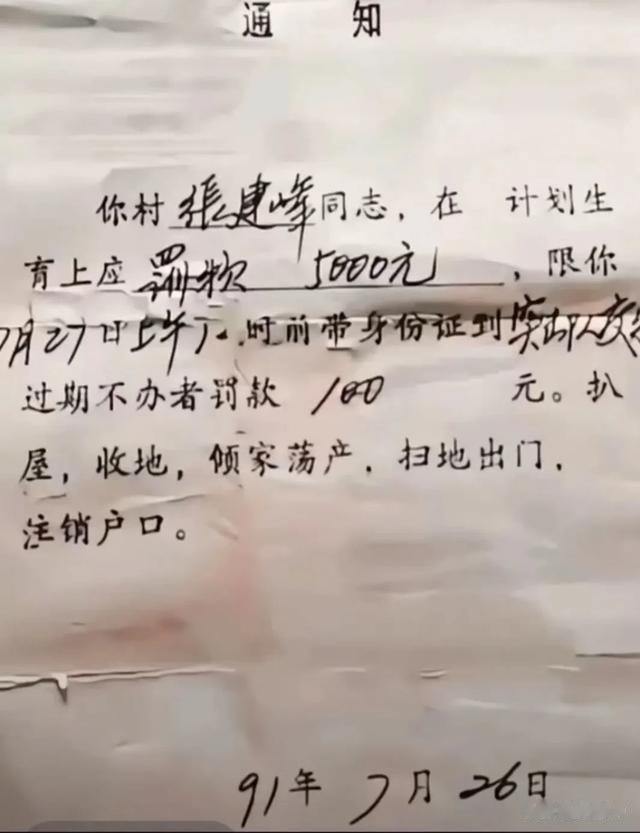 通 知
你村张建峰同志，在 计划生
育上应罚款 5000元，限你
7月27日上午 时前带身份证到突击队交
过期不办者罚款 100 元。扒
屋，收地，倾家荡产．扫地出门．
注销户口。
91年 7月 26日